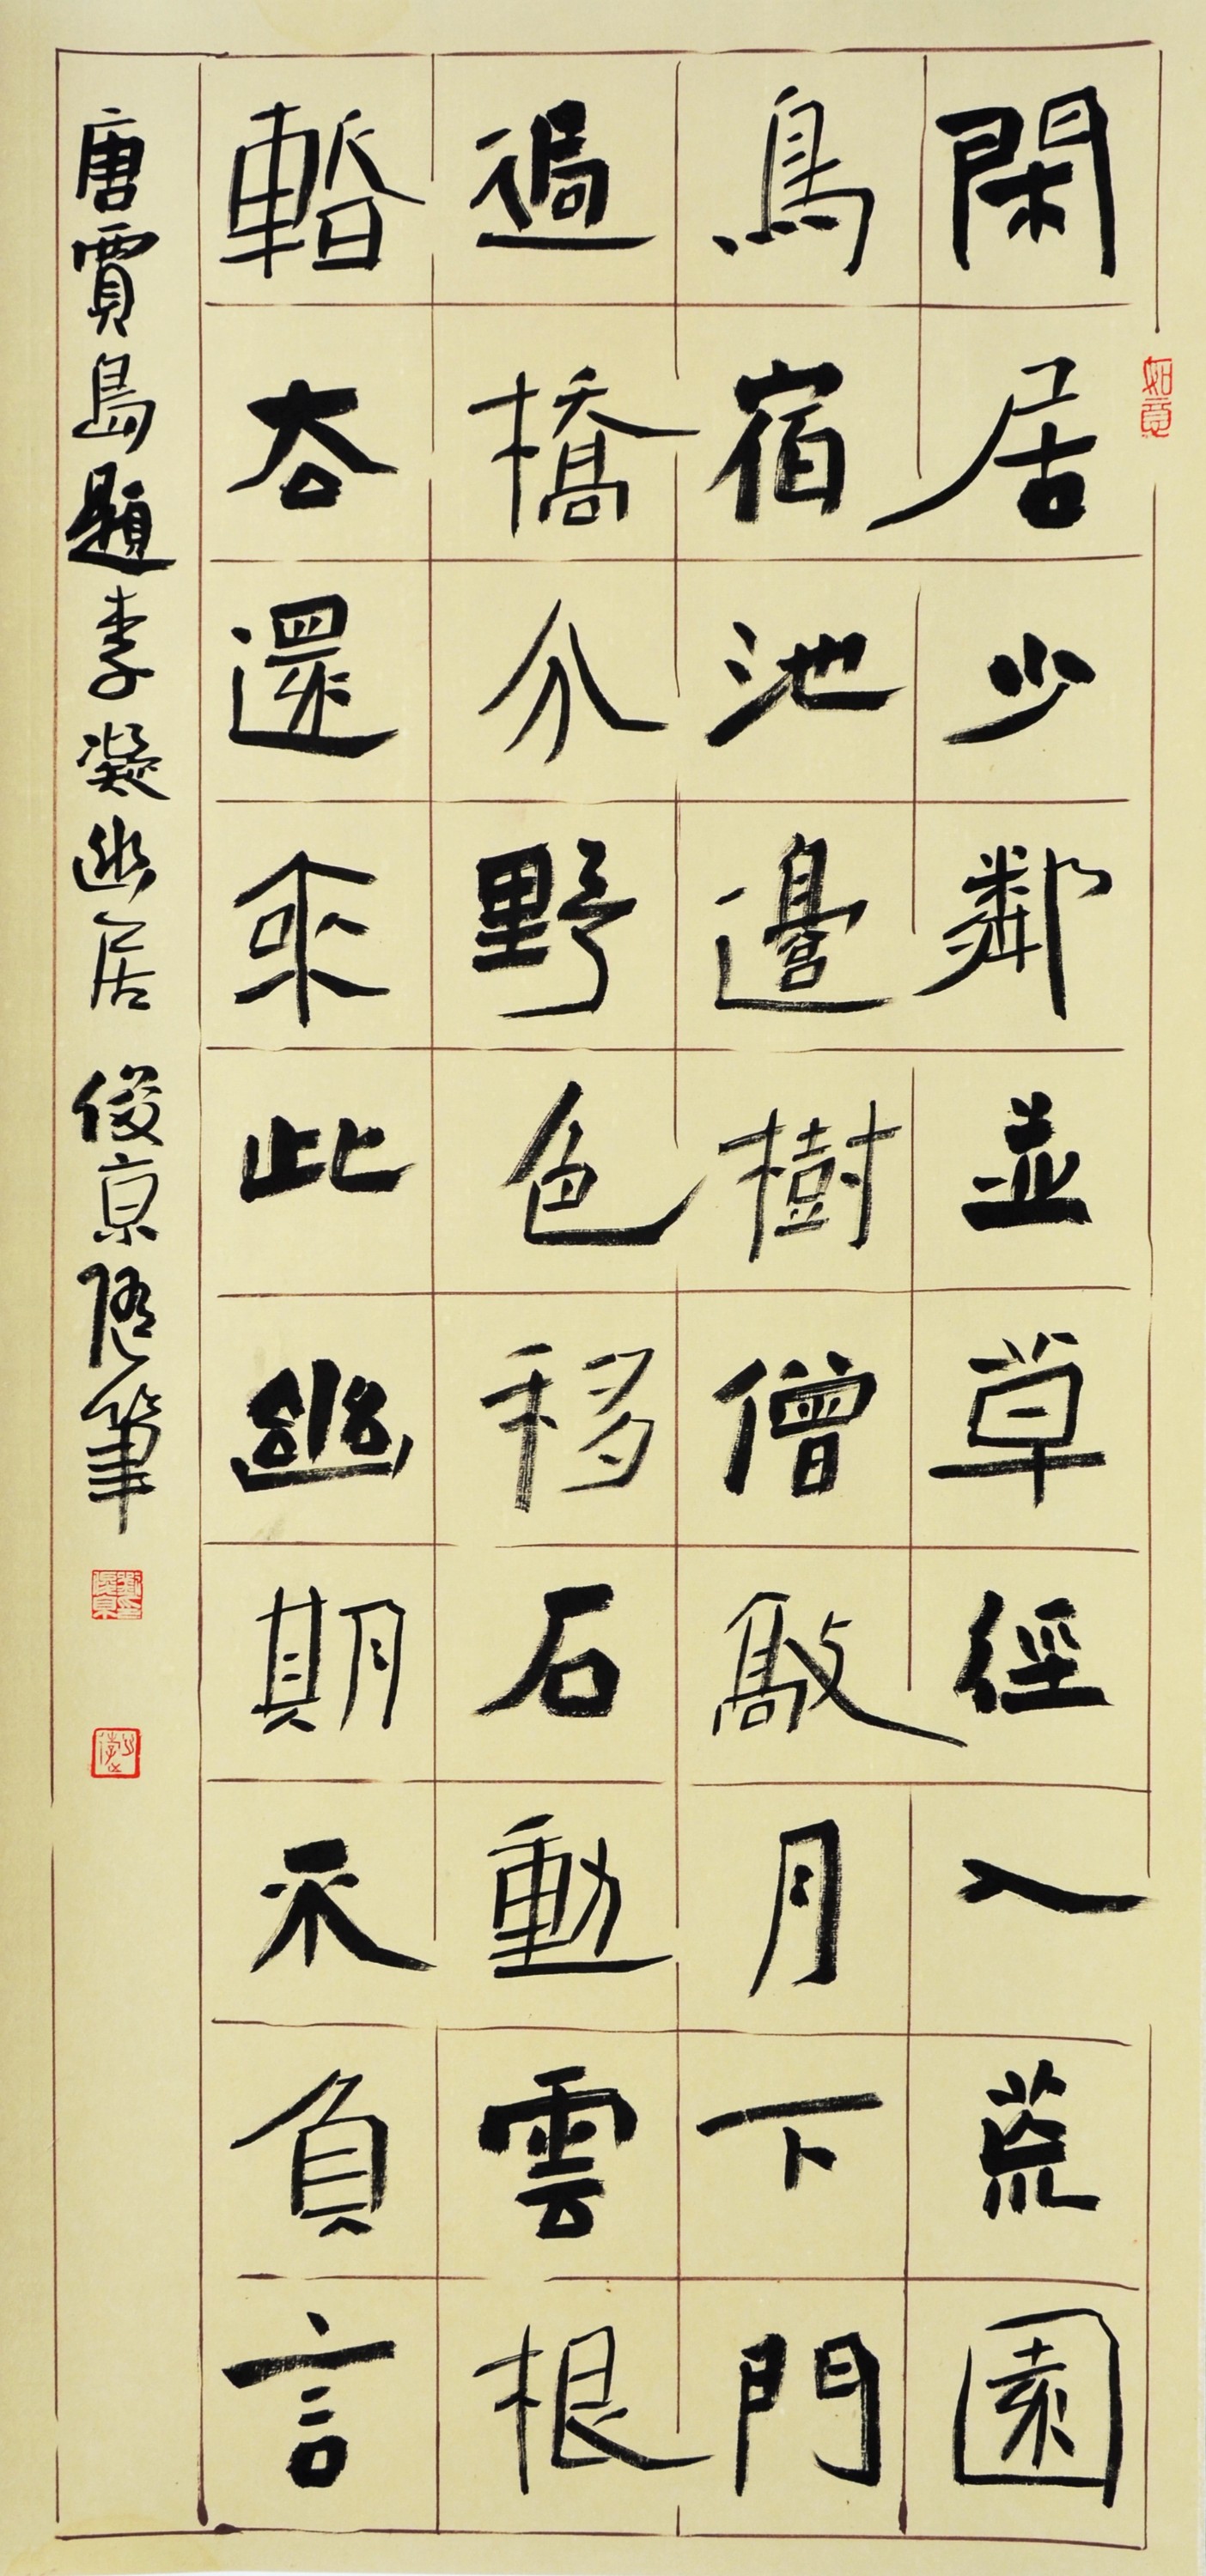 閑居少鄰並草徑入荒園
鳥宿池邊樹僧敲月下門
過橋分野色移石動雲根
暫去還來此幽期不負言
唐賈島題李凝幽居 俊京悟筆
如意